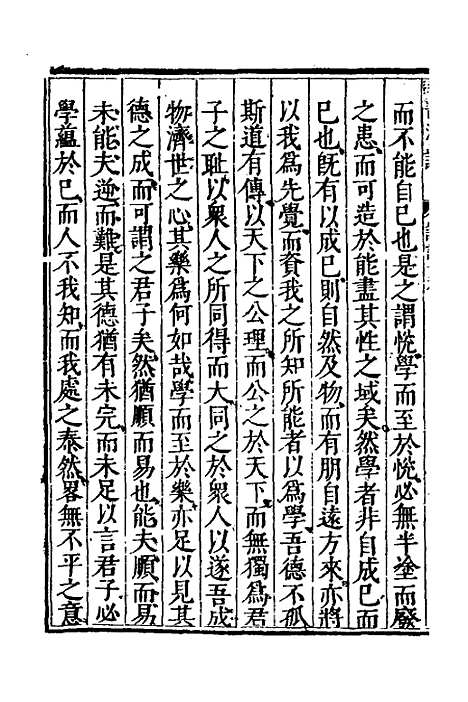 而不能自已也是之謂悅學而至於悅必無半塗而廢
之患而可造於能盡其性之域矣然學者非自成已而
已也旣有以成已則自然及物而有朋自遠方來亦將
以我爲先覺而資我之所知所能者以爲學吾德不孤
斯道有傳以天下之公理而公之於天下而無獨爲君
子之耻以衆人之所同得而大同之於衆人以遂吾成
物濟世之心其樂爲何如哉學而至於樂亦足以見其
德之成而可謂之君子矣然猶順而易也能夫順而易
未能夫逆而難是其德猶有未完而未足以言君子必
學蘊於已而人不我知而我處之泰然畧無不平之意